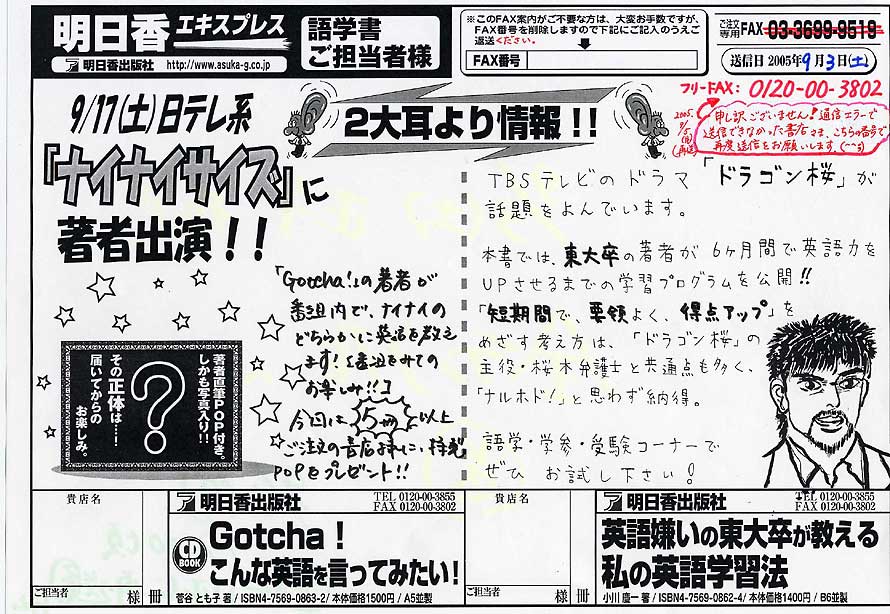 明日香エキスプレス
明日香出版社 http://www.asuka-g.co.jp
語学書
ご担当者様
※このFAX案内がご不要な方は、大変お手数ですが、
FAX番号を削除しますので下記にご記入のうえご
返送ください。
FAX番号
ご注文専用FAX 03-3699-9519
送信日 2005年9月3日(土)
フリーFAX: 0120-00-3802
2005.
9/5
(月)
(再送)
申し訳ございません!通信エラーで
送信できなかった書店さま、こちらの番号で
再度送信をお願いします
9/17(土)日テレ系
『ナイナイサイズ』に
著者出演!!
2大耳より情報!!
「Gotcha!」の著者が
番組内で、ナイナイの
どちらかに英語を教え
ます!【番組をみての
お楽しみ!!】
今回は5冊以上
ご注文の書店さまに、特製
POPをプレゼント!!
著者直筆POP付き。
しかも写真入り!!
?
その正体は…!
届いてからの
お楽しみ。
TBSテレビのドラマ「ドラゴン桜」が
話題をよんでいます。
本書では、東大卒の著者が6ヶ月間で英語力を
UPさせるまでの学習プログラムを公開!!
「短期間で、要領よく、得点アップ」を
めざす考え方は、「ドラゴン桜」の
主役・桜木弁護士と共通点も多く、
「ナルホド!」と思わず納得。
語学・学参・受験コーナーで
ぜひ お試し下さい!
貴店名
ご担当者
様
冊
明日香出版社
TEL 0120-00-3855
FAX 0120-00-3802
CD BOOK
Gotcha!
こんな英語を言ってみたい!
菅谷 とも子 著 / ISBN4-7569-0863-2/ 本体価格1500円 / A5並製
貴店名
ご担当者
様
冊
明日香出版社
TEL 0120-00-3855
FAX 0120-00-3802
英語嫌いの東大卒が教える
私の英語学習法
小川 慶一 著 / ISBN4-7569-0862-4/ 本体価格1400円 / B6並製